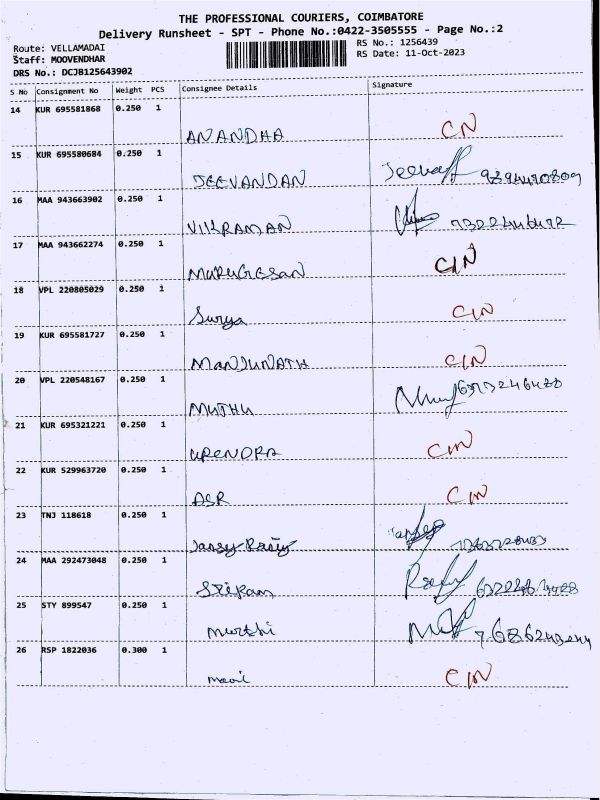 THE PROFESSIONAL COURIERS, COIMBATORE
Delivery Runsheet - SPT - Phone No.:0422-3505555 - Page No.:2
Route: VELLAMADAI
RS No.: 1256439
Staff: MOOVENDHAR
RS Date: 11-Oct-2023
DRS No.: DCJB125643902
S No Consignment No Weight PCS Consignee Details Signature
14 KUR 695581868 0.250 1
ANANDHA CIN
15 KUR 695580684 0.250 1
JEEVANDAN
16 MAA 943663902 0.250 1
VIKRAMAN
17 MAA 943662274 0.250 1
MURUGESAN CIN
18 VPL 220805029 0.250 1
Surya CIN
19 KUR 695581727 0.250 1
MANJUNATH CIN
20 VPL 220548167 0.250 1
MUTHU
21 KUR 695321221 0.250 1
UPENDRA CIN
22 KUR 529963720 0.250 1
ASR CIN
23 TNJ 118618 0.250 1
24 MAA 292473048 0.250 1
SRIRAM
25 STY 899547 0.250 1
Murthi
26 RSP 1822036 0.300 1
CIN